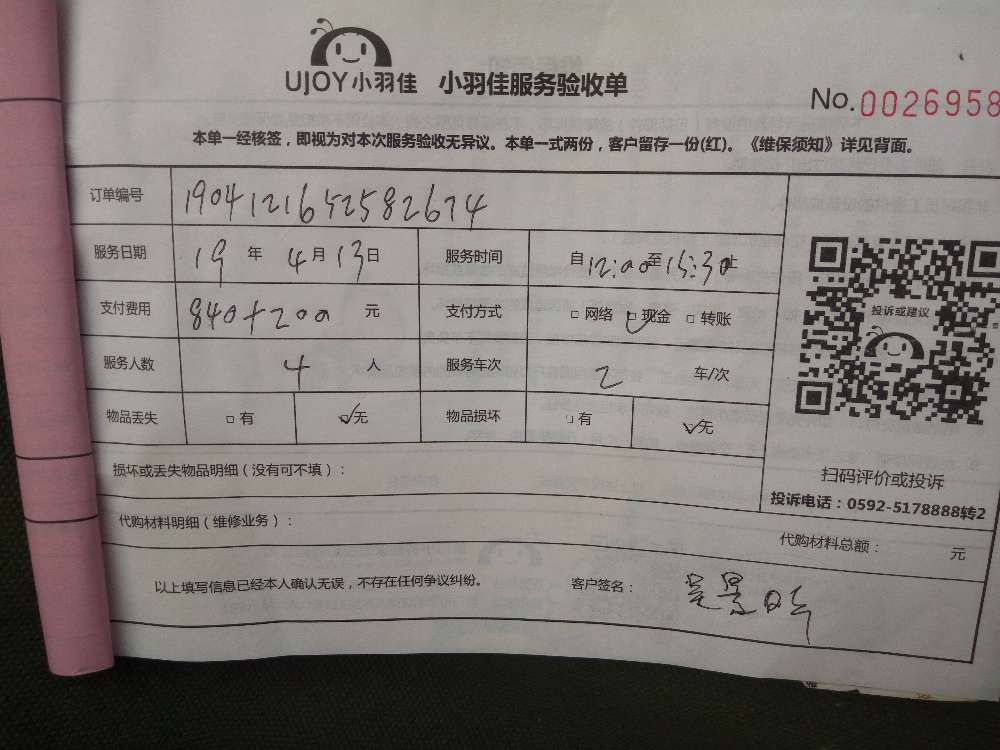 UJOY小羽佳 小羽佳服务验收单
No.0026958
本单一经核签，即视为对本次服务验收无异议。本单一式两份，客户留存一份(红)。《维保须知》详见背面。
订单编号 1904121652582674
服务日期 19 年 4 月 13 日 服务时间 自 12:00 至 15:30 止
支付费用 840+200 元 支付方式 □ 网络 □ 现金 □ 转账
服务人数 4 人 服务车次 2 车/次
物品丢失 □ 有 ☑ 无 物品损坏 □ 有 ☑ 无
投诉或建议
扫码评价或投诉
投诉电话：0592-5178888转2
损坏或丢失物品明细（没有可不填）：
代购材料明细（维修业务）：
代购材料总额： 元
以上填写信息已经本人确认无误，不存在任何争议纠纷。 客户签名：